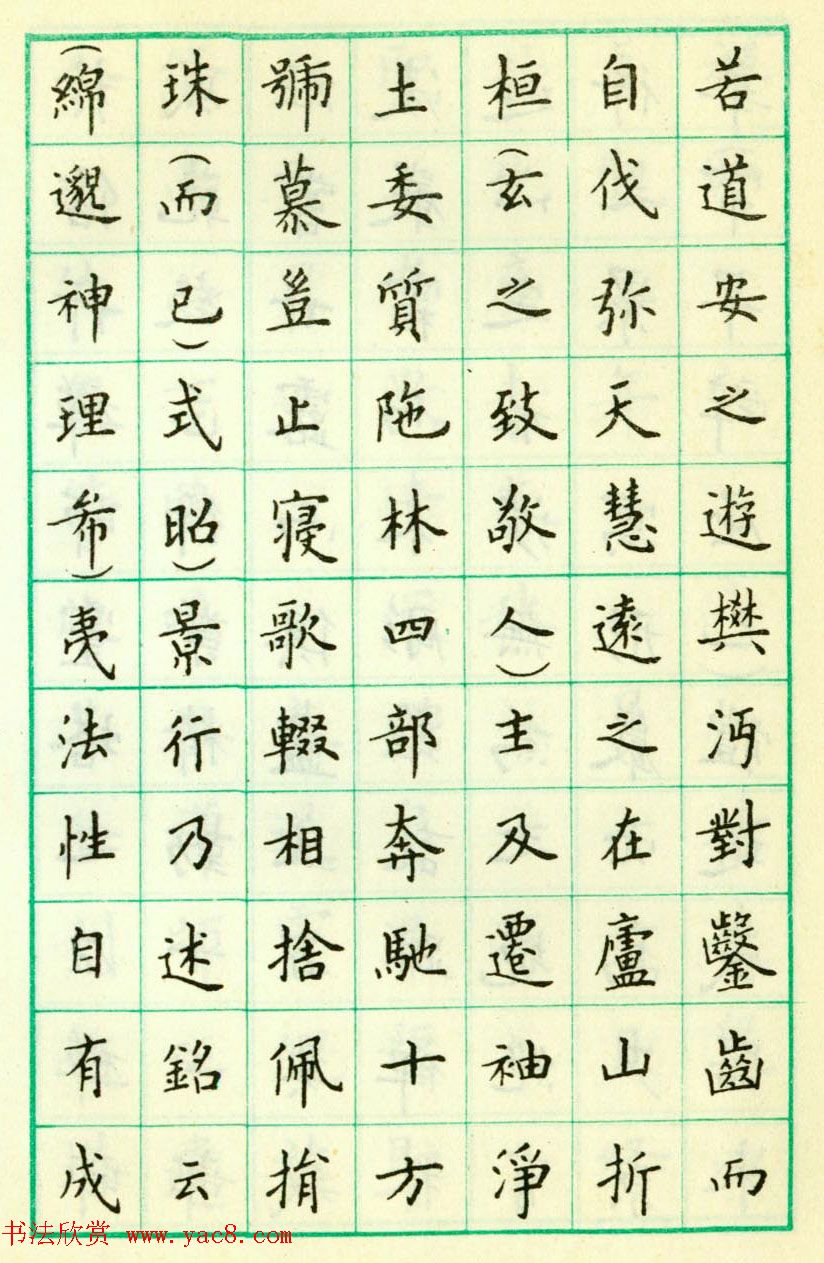 若道安之遊樊沔對鑿齒而
自伐弥天慧遠之在廬山折
桓（玄之致敬人）主及遷袖淨
土委質陁林四部奔馳十方
號慕豈止寝歌輟相捨佩捐
珠（而已）式昭）景行乃述銘云
（綿邈神理希）夷法性自有成
书法欣赏 www.yac8.com